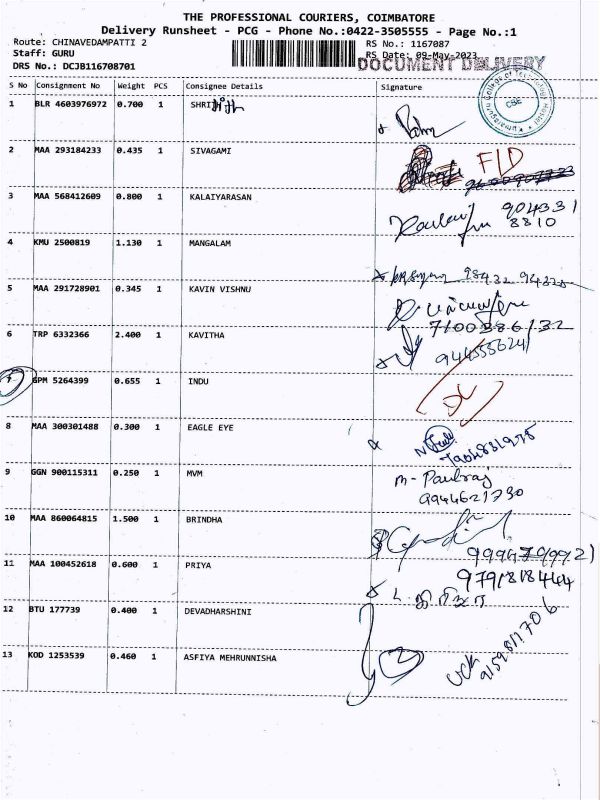 THE PROFESSIONAL COURIERS, COIMBATORE
Delivery Runsheet - PCG - Phone No.:0422-3505555 - Page No.:1
Route: CHINAVEDAMPATTI 2 RS No.: 1167087
Staff: GURU RS Date: 09-May-2023
DRS No.: DCJB116708701 DOCUMENT DELIVERY
S No Consignment No Weight PCS Consignee Details Signature
1 BLR 4603976972 0.700 1 SHRI
CBE
2 MAA 293184233 0.435 1 SIVAGAMI F/D
3 MAA 568412609 0.800 1 KALAIYARASAN 904331
8810
4 KMU 2500819 1.130 1 MANGALAM
5 MAA 291728901 0.345 1 KAVIN VISHNU
7100386132
6 TRP 6332366 2.400 1 KAVITHA
7 GPM 5264399 0.655 1 INDU DL
8 MAA 300301488 0.300 1 EAGLE EYE
9 GGN 900115311 0.250 1 MVM M- Paulraj
9944621730
10 MAA 860064815 1.500 1 BRINDHA
11 MAA 100452618 0.600 1 PRIYA 9791818444
12 BTU 177739 0.400 1 DEVADHARSHINI
13 KOD 1253539 0.460 1 ASFIYA MEHRUNNISHA